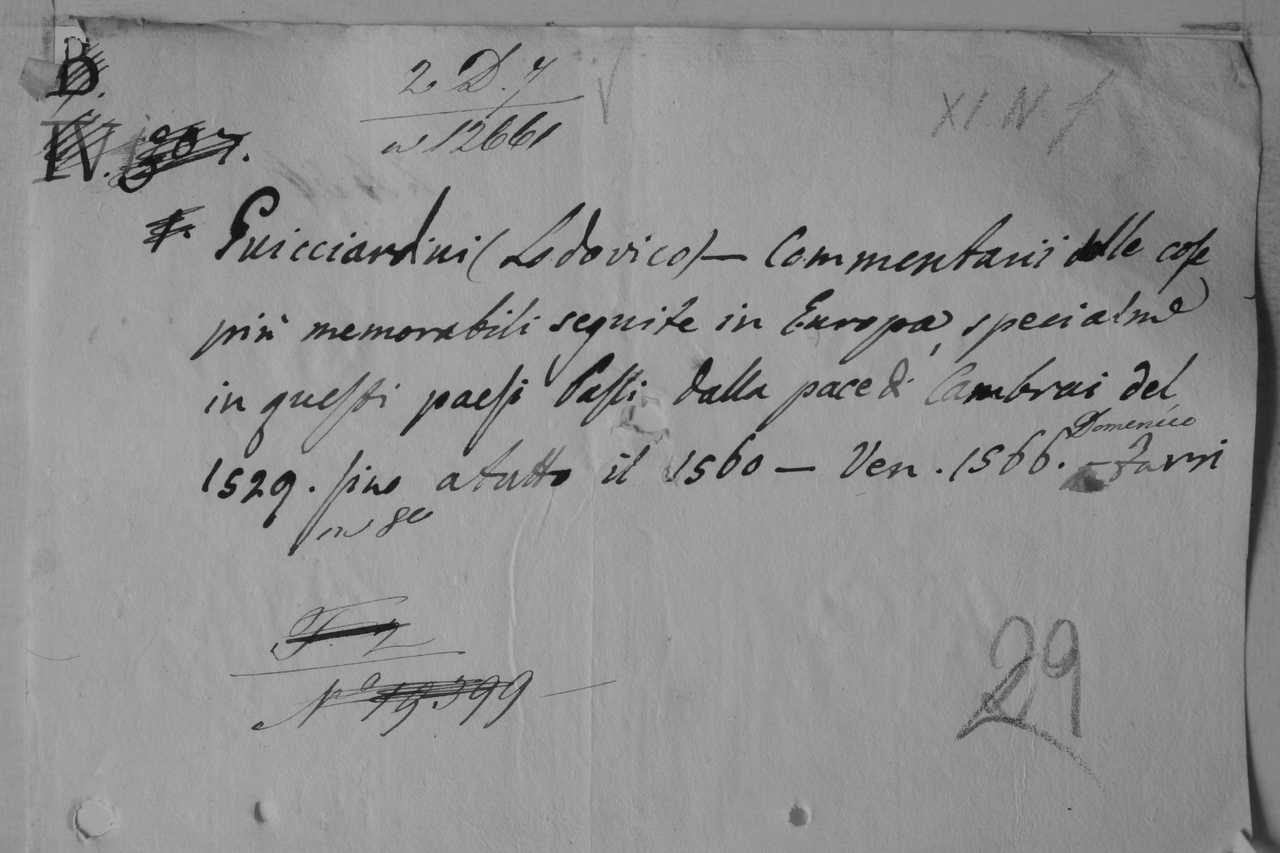 B.
2 D. 7
n 12661
XI. N. f
IV. 307.
Guicciardini (Lodovico) — Commentarii delle cose
più memorabili seguite in Europa, specialme
in questi paesi Bassi, dalla pace di Cambrai del
1529. sino a tutto il 1560 — Ven. 1566. — Domenico Farri
in 8o
F. 2
No 19.399
29